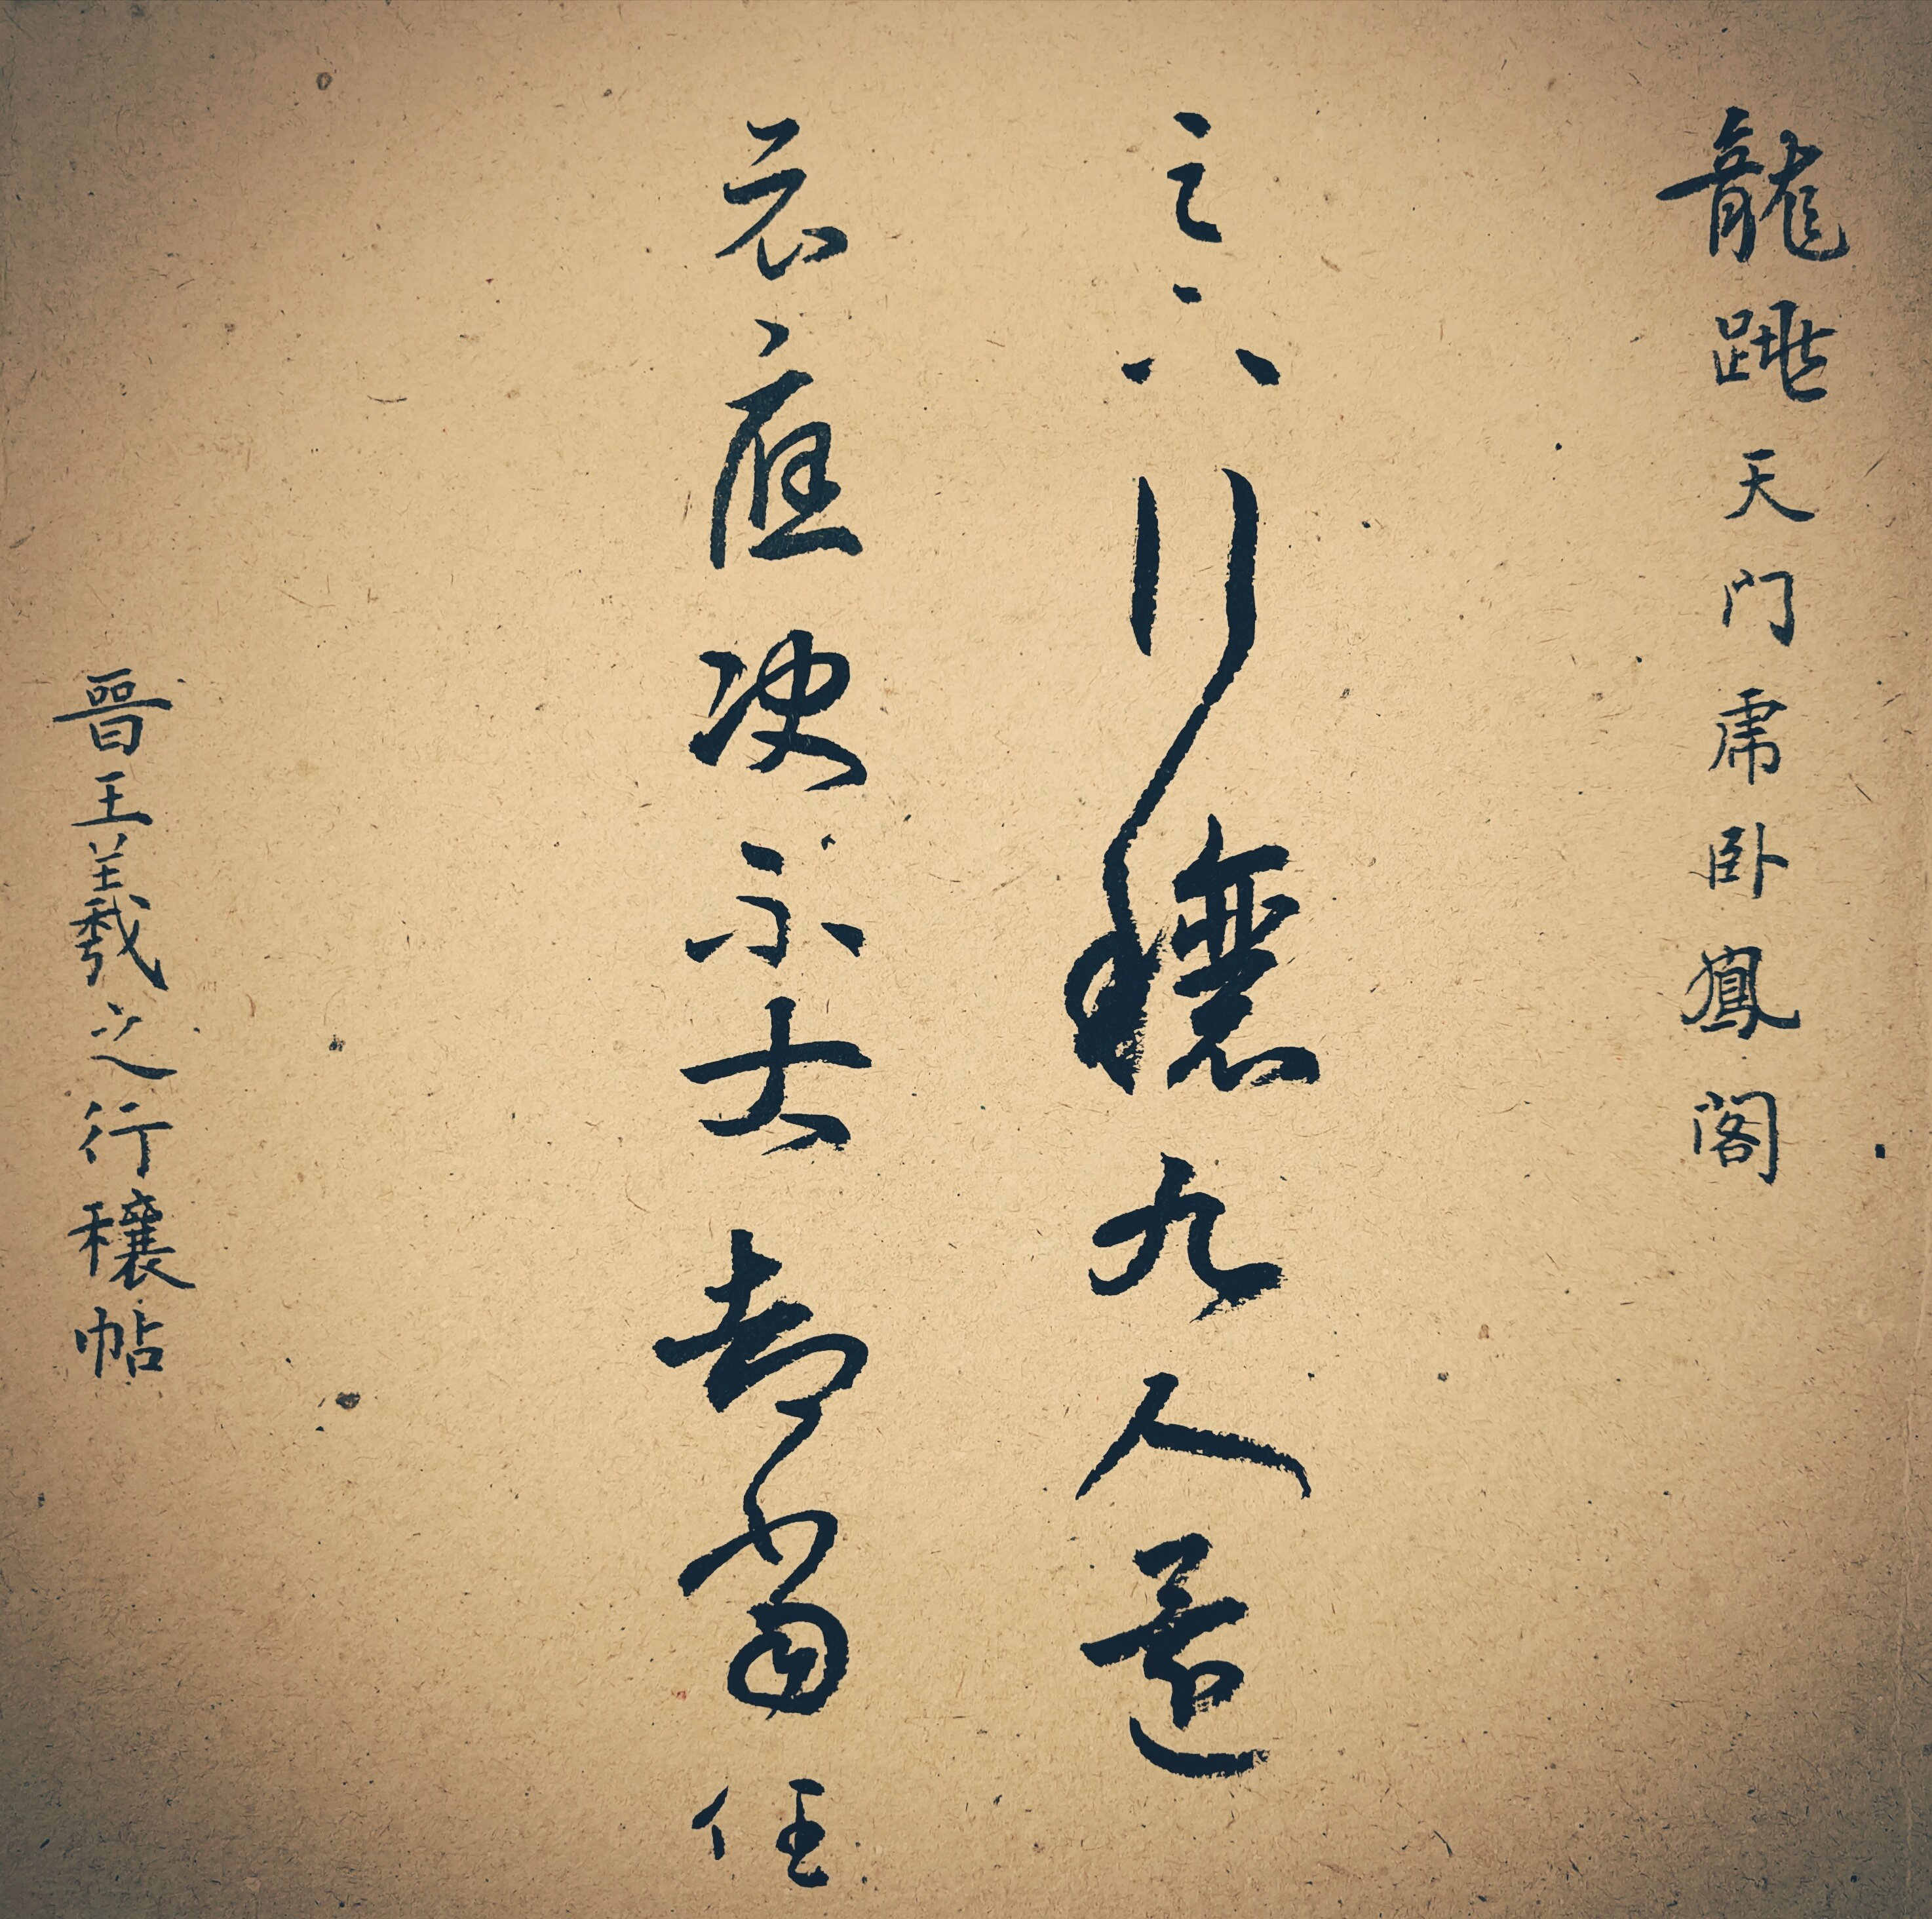 龍跳天門虎卧鳳閣
之六行穰九人還
示應決不大都當任
晉王羲之行穰帖